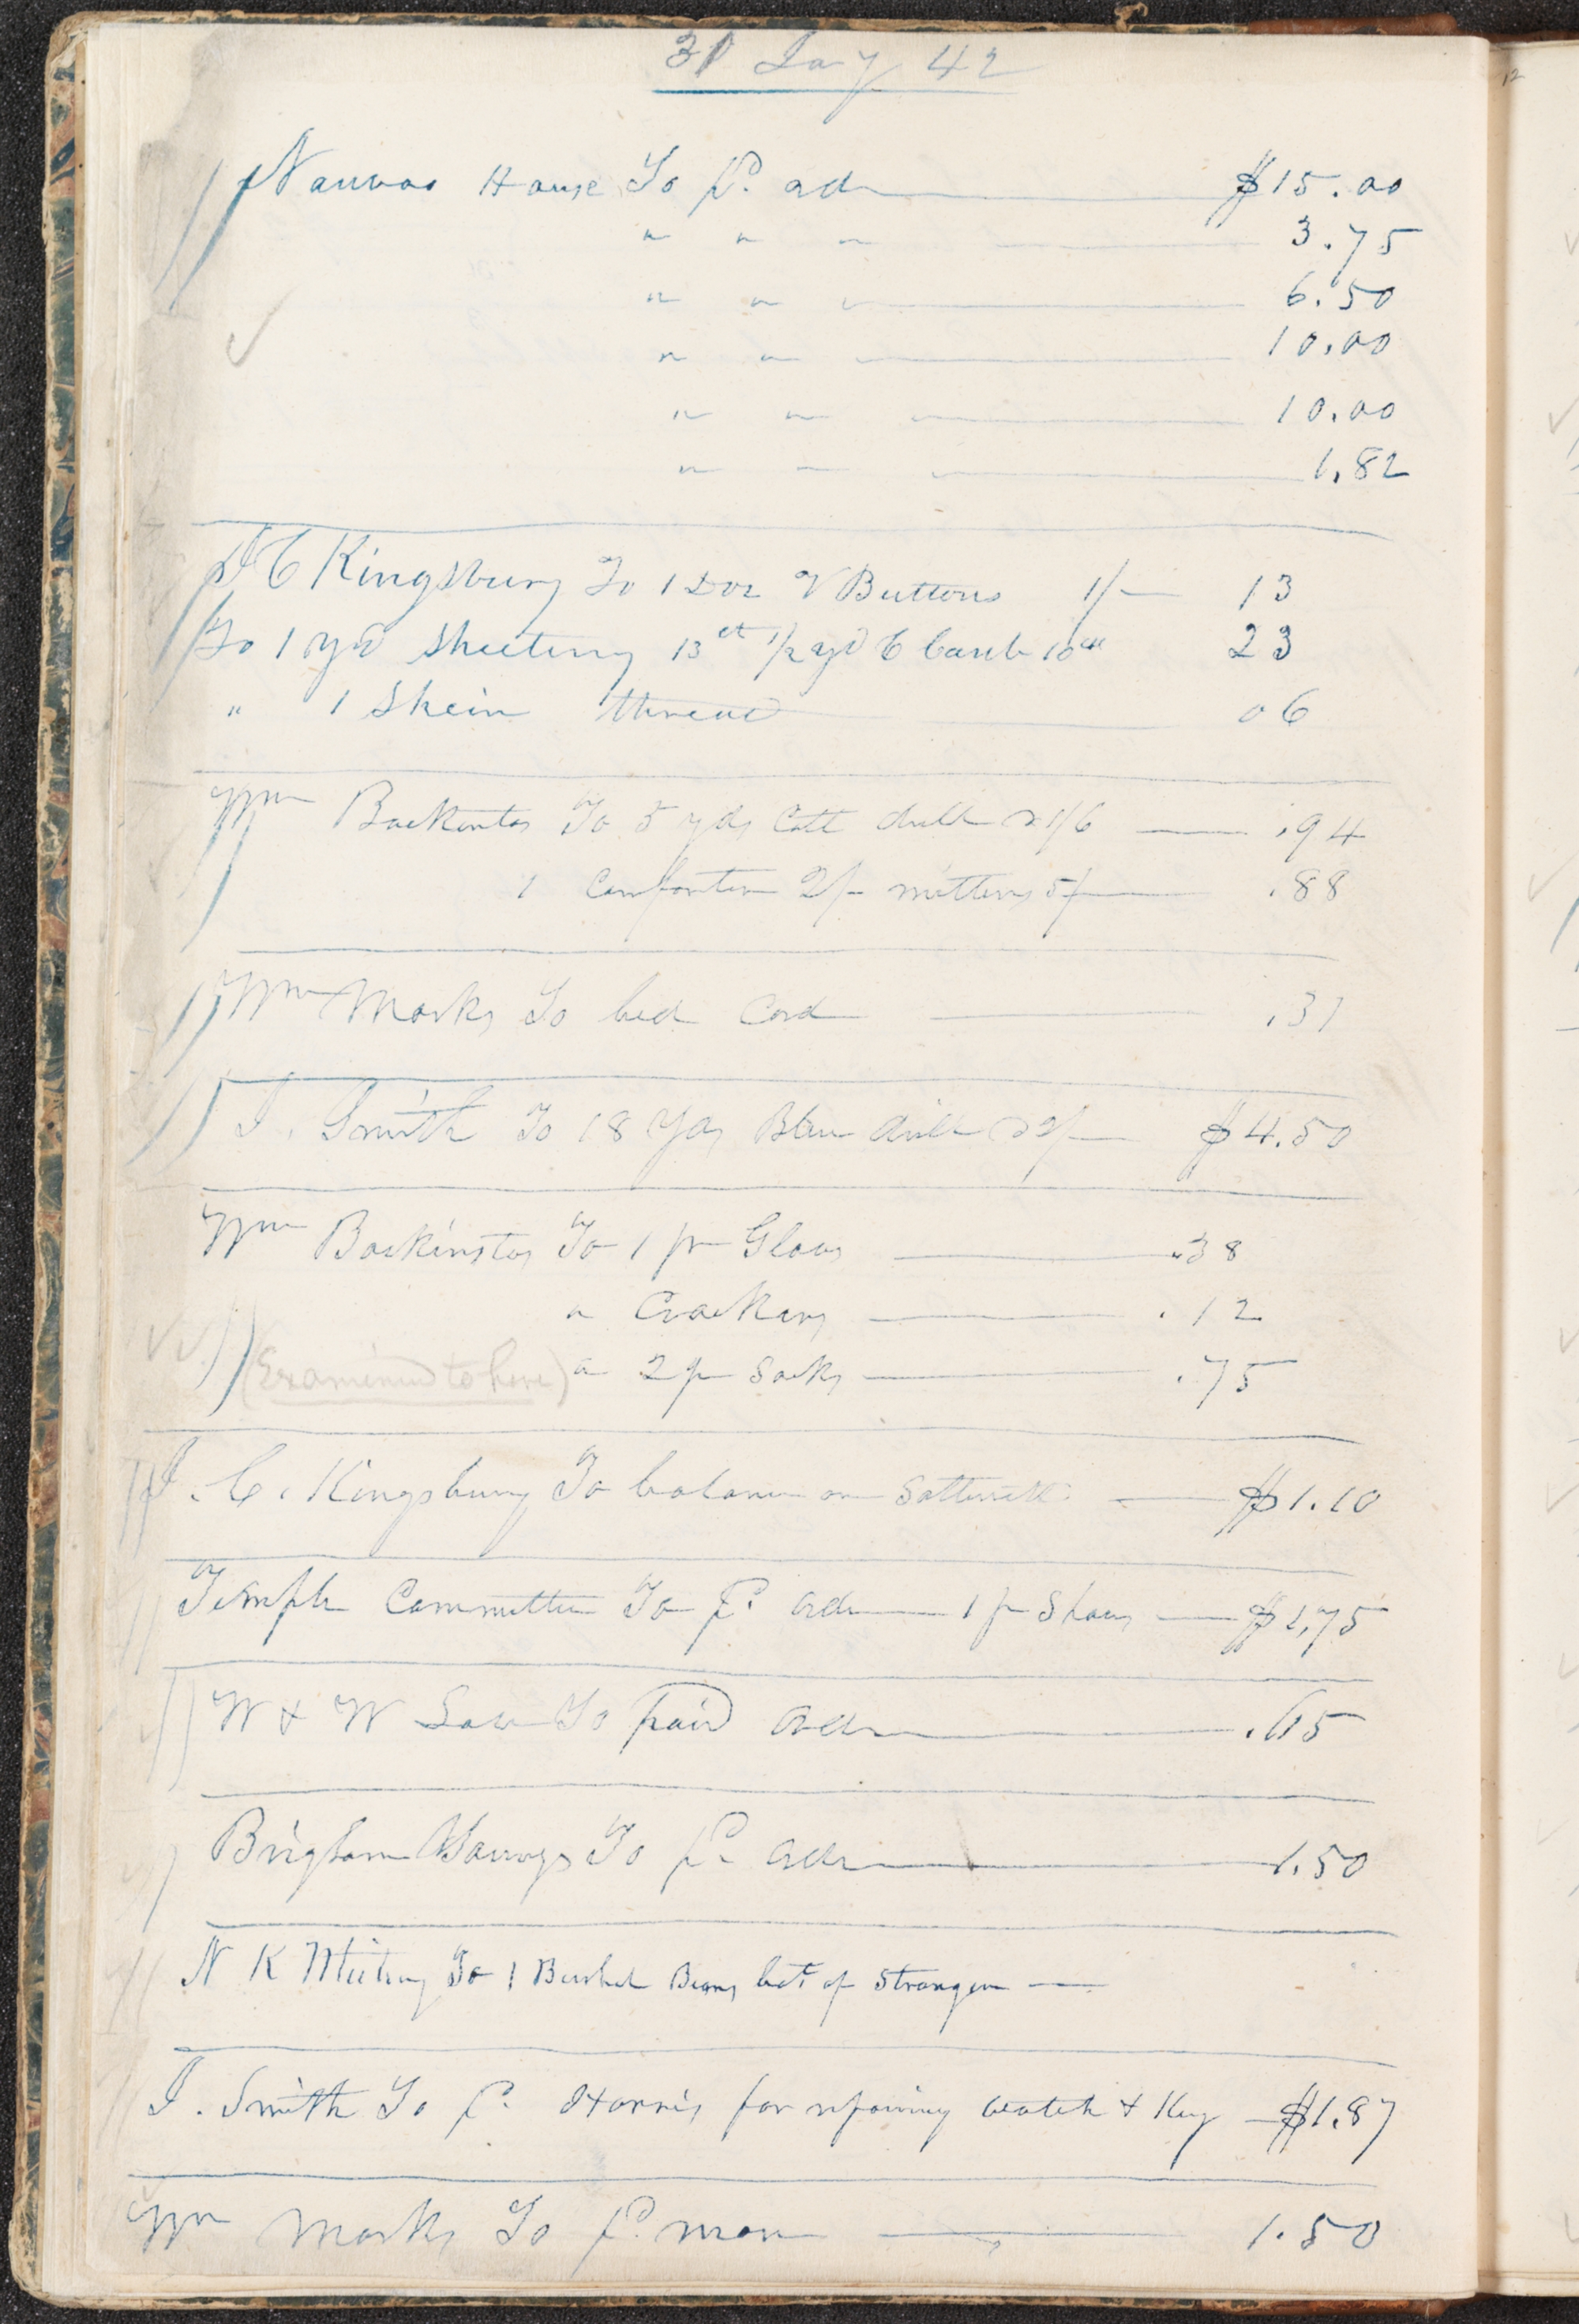 31 Jany 42
Nauvoo House To Pd. ordr $15.00
" " " 3.75
" " " 6.50
" " " 10.00
" " " 10.00
" " " 1.82
J C Kingsbury To 1 Doz V Buttons 1/– 13
To 1 yd Sheeting 13ct 1/2 yd C 10ct 23
" 1 Skein thread 06
Wm Backentos To 5 yds Cott drill @ 1/6 .94
1 Comforter 2/– mittens 5/– .88
Wm Marks To bed Cord .31
J. Smith To 18 Yds Blue drill @ 2/– $4.50
Wm Backinstos To 1 pr Gloves .38
" Crackers .12
(Examined to here) " 2 pr Socks .75
J. C. Kingsbury To balance on Sattinett $1.10
Temple Committee To Pd. ordr 1 pr Shoes $1,75
W & W Law To paid ordr .65
Brigham Youngs To Pd ordr 1.50
N K Whitney To 1 Bushel Beans bot of Stranger
J. Smith To Pd. Harris for repairing watch & Key $1.87
Wm Marks To Pd. man 1.50
12